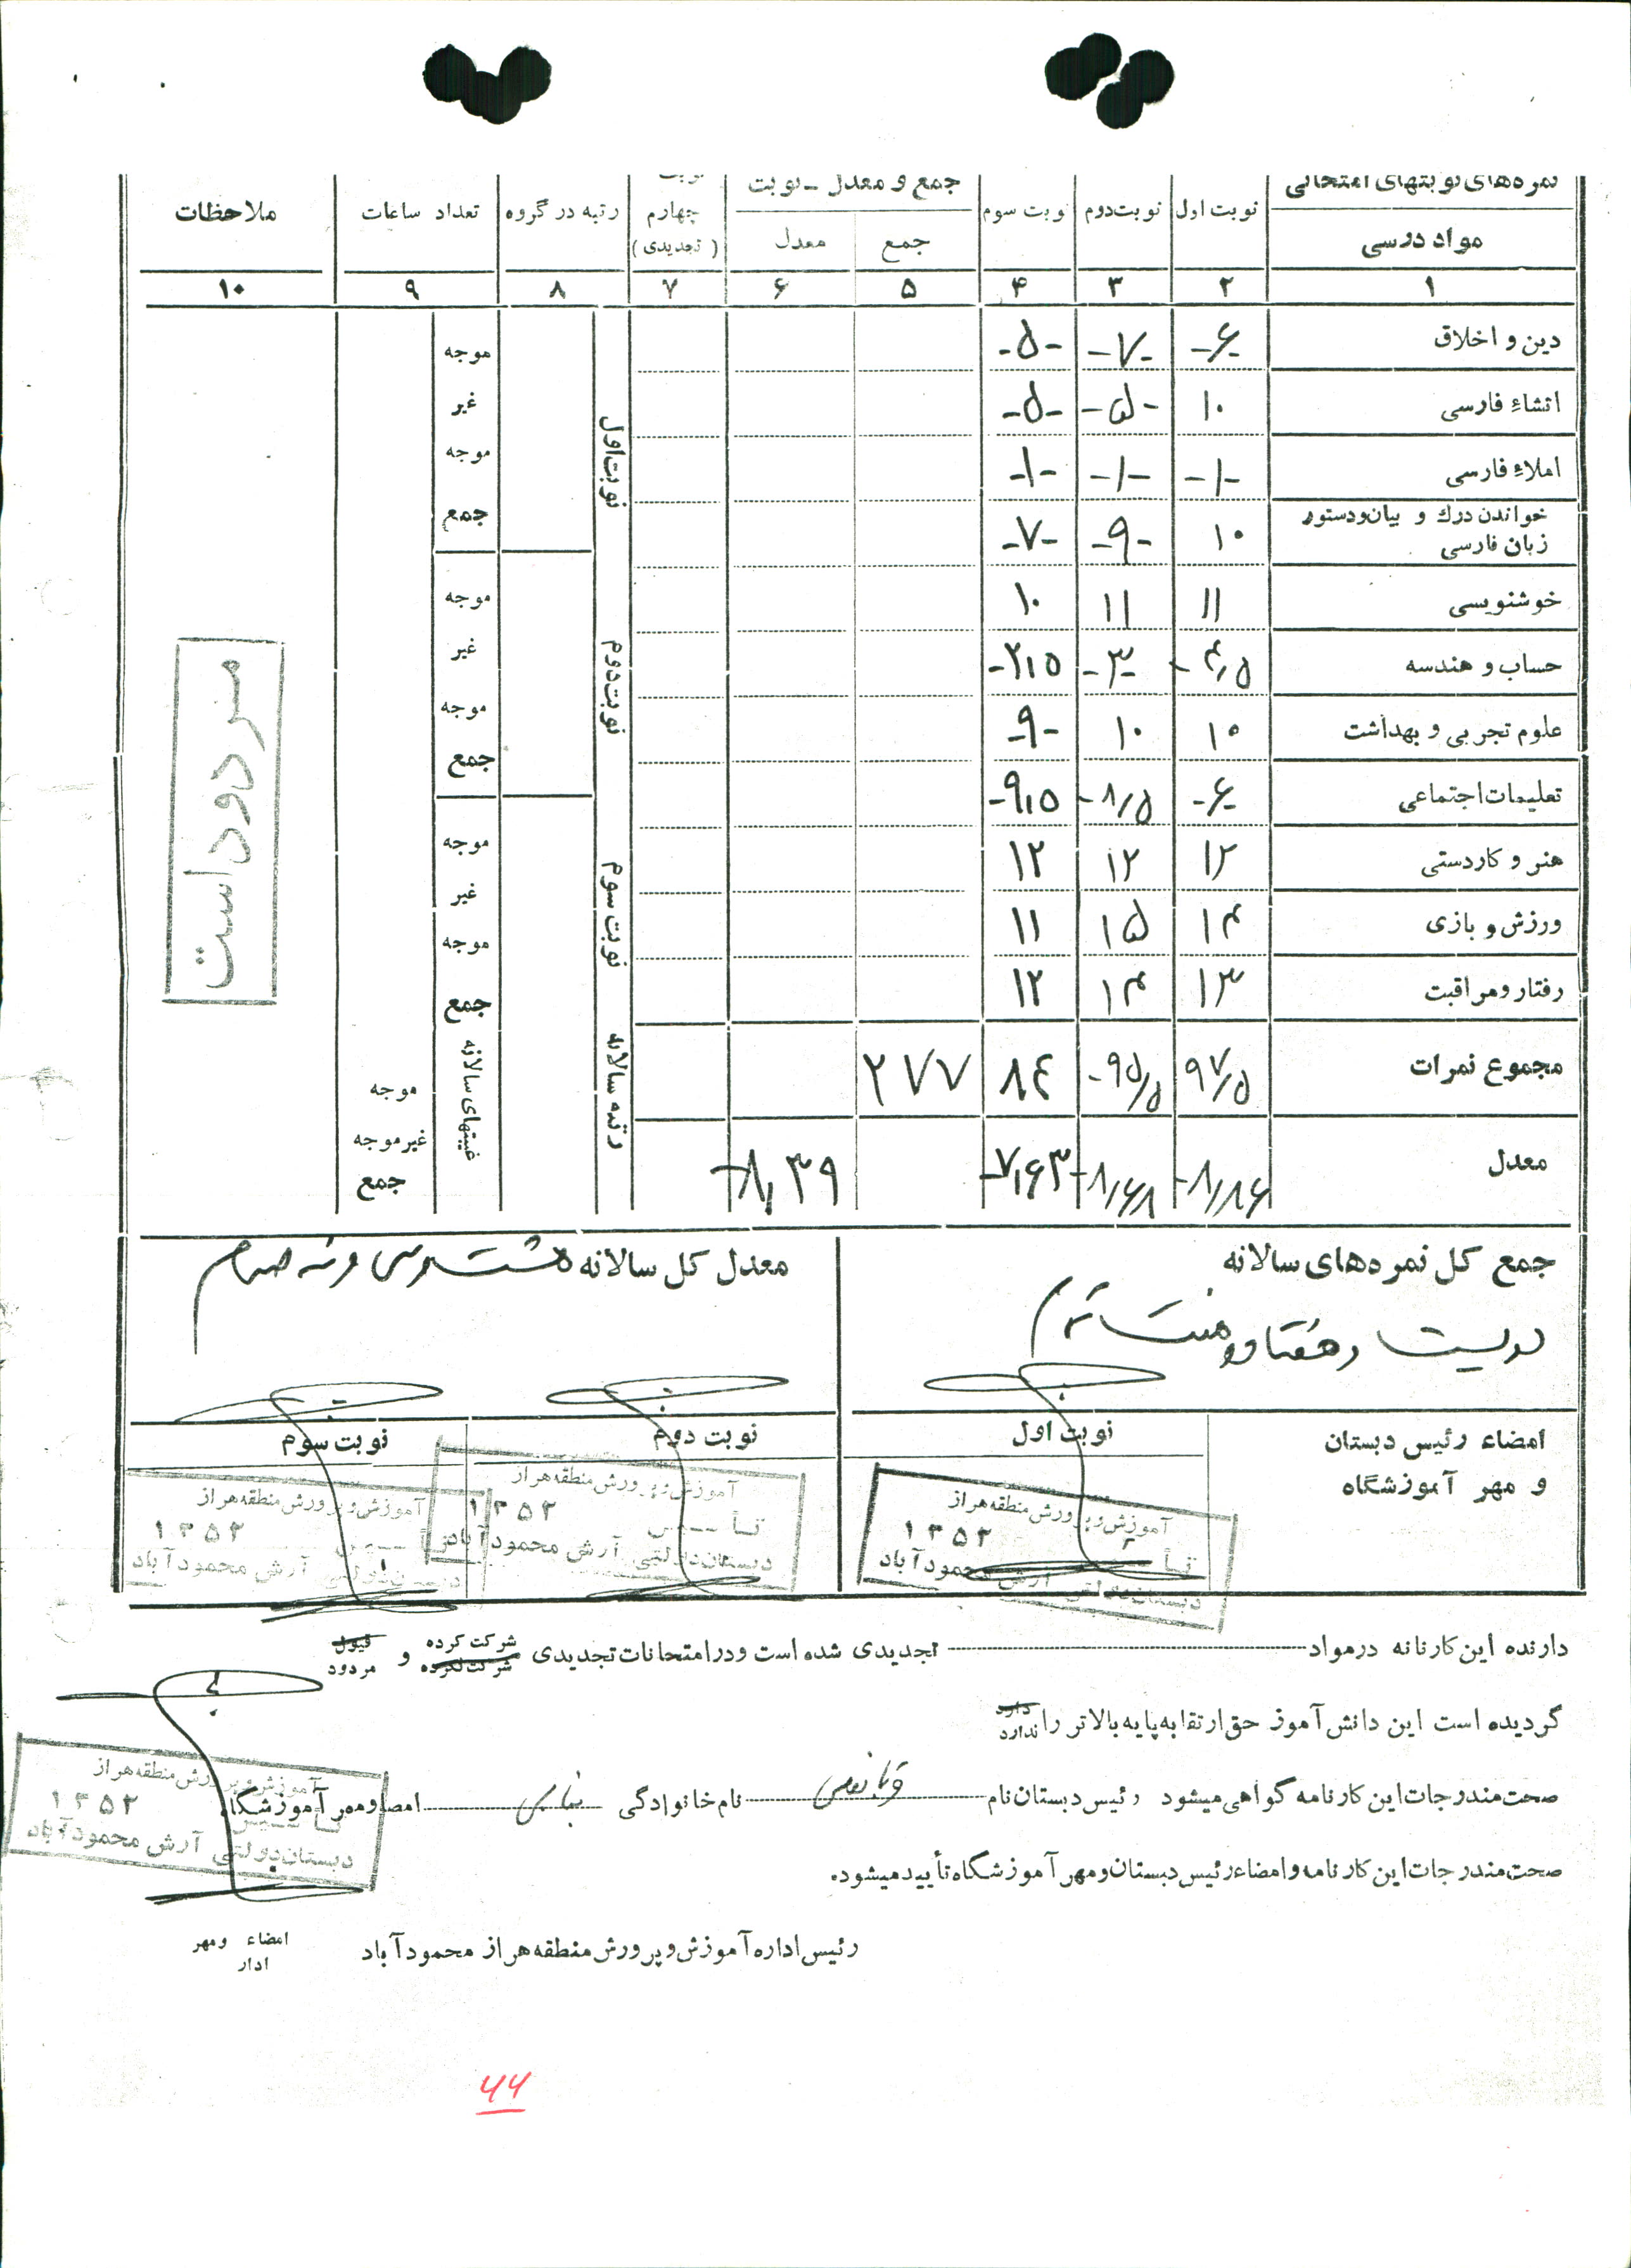 نمره‌های نوبتهای امتحانی
مواد درسی
نوبت اول
نوبت دوم
نوبت سوم
جمع و معدل - نوبت
جمع
معدل
نوبت چهارم (تجدیدی)
رتبه در گروه
تعداد ساعات
ملاحظات
۱ ۲ ۳ ۴ ۵ ۶ ۷ ۸ ۹ ۱۰
دین و اخلاق -۶- -۷- -۵-
انشاء فارسی ۱۰ -۵- -۵-
املاء فارسی -۱- -۱- -۱-
خواندن درك و بیان ودستور زبان فارسی ۱۰ -۹- -۷-
خوشنویسی ۱۱ ۱۱ ۱۰
حساب و هندسه -۴/۵ -۳- -۲،۵
علوم تجربی و بهداشت ۱۰ ۱۰ -۹-
تعلیمات اجتماعی -۶- -۸/۵ -۹،۵
هنر و کاردستی ۱۲ ۱۲ ۱۲
ورزش و بازی ۱۴ ۱۵ ۱۱
رفتار ومراقبت ۱۳ ۱۴ ۱۲
مجموع نمرات ۹۷/۵ -۹۵/۵ ۸۴ ۲۷۷
معدل -۸/۸۶ -۸/۶۸ -۷،۶۳ -۸،۳۹
نوبت اول
نوبت دوم
نوبت سوم
رتبه سالانه
موجه
غیر
موجه
جمع
موجه
غیر
موجه
جمع
موجه
غیر
موجه
جمع
غیبتهای سالانه
موجه
غیرموجه
جمع
مردود است
جمع کل نمره‌های سالانه
دویست و هفتاد و هفت
معدل کل سالانه هشت و سی و نه صدم
امضاء رئیس دبستان
و مهر آموزشگاه
نوبت اول
نوبت دوم
نوبت سوم
آموزش و پرورش منطقه هراز
تأسیس ۱۳۵۲
دبستان دولتی آرش محمودآباد
آموزش و پرورش منطقه هراز
تأسیس ۱۳۵۲
دبستان دولتی آرش محمودآباد
آموزش و پرورش منطقه هراز
تأسیس ۱۳۵۲
دبستان دولتی آرش محمودآباد
دارنده این کارنانه درمواد تجدیدی شده است ودرامتحانات تجدیدی شرکت کرده شرکت نکرده و قبول مردود
گردیده است این دانش آموز حق ارتقا به پایه بالاتر را دارد ندارد
صحت مندرجات این کارنامه گواهی میشود رئیس دبستان نام نام خانوادگی امضا ومهر آموزشگاه
آموزش و پرورش منطقه هراز
تأسیس ۱۳۵۲
دبستان دولتی آرش محمودآباد
صحت مندرجات این کارنامه و امضاء رئیس دبستان و مهر آموزشگاه تأیید میشود.
رئیس اداره آموزش و پرورش منطقه هراز محمودآباد
امضاء ومهر
ادار